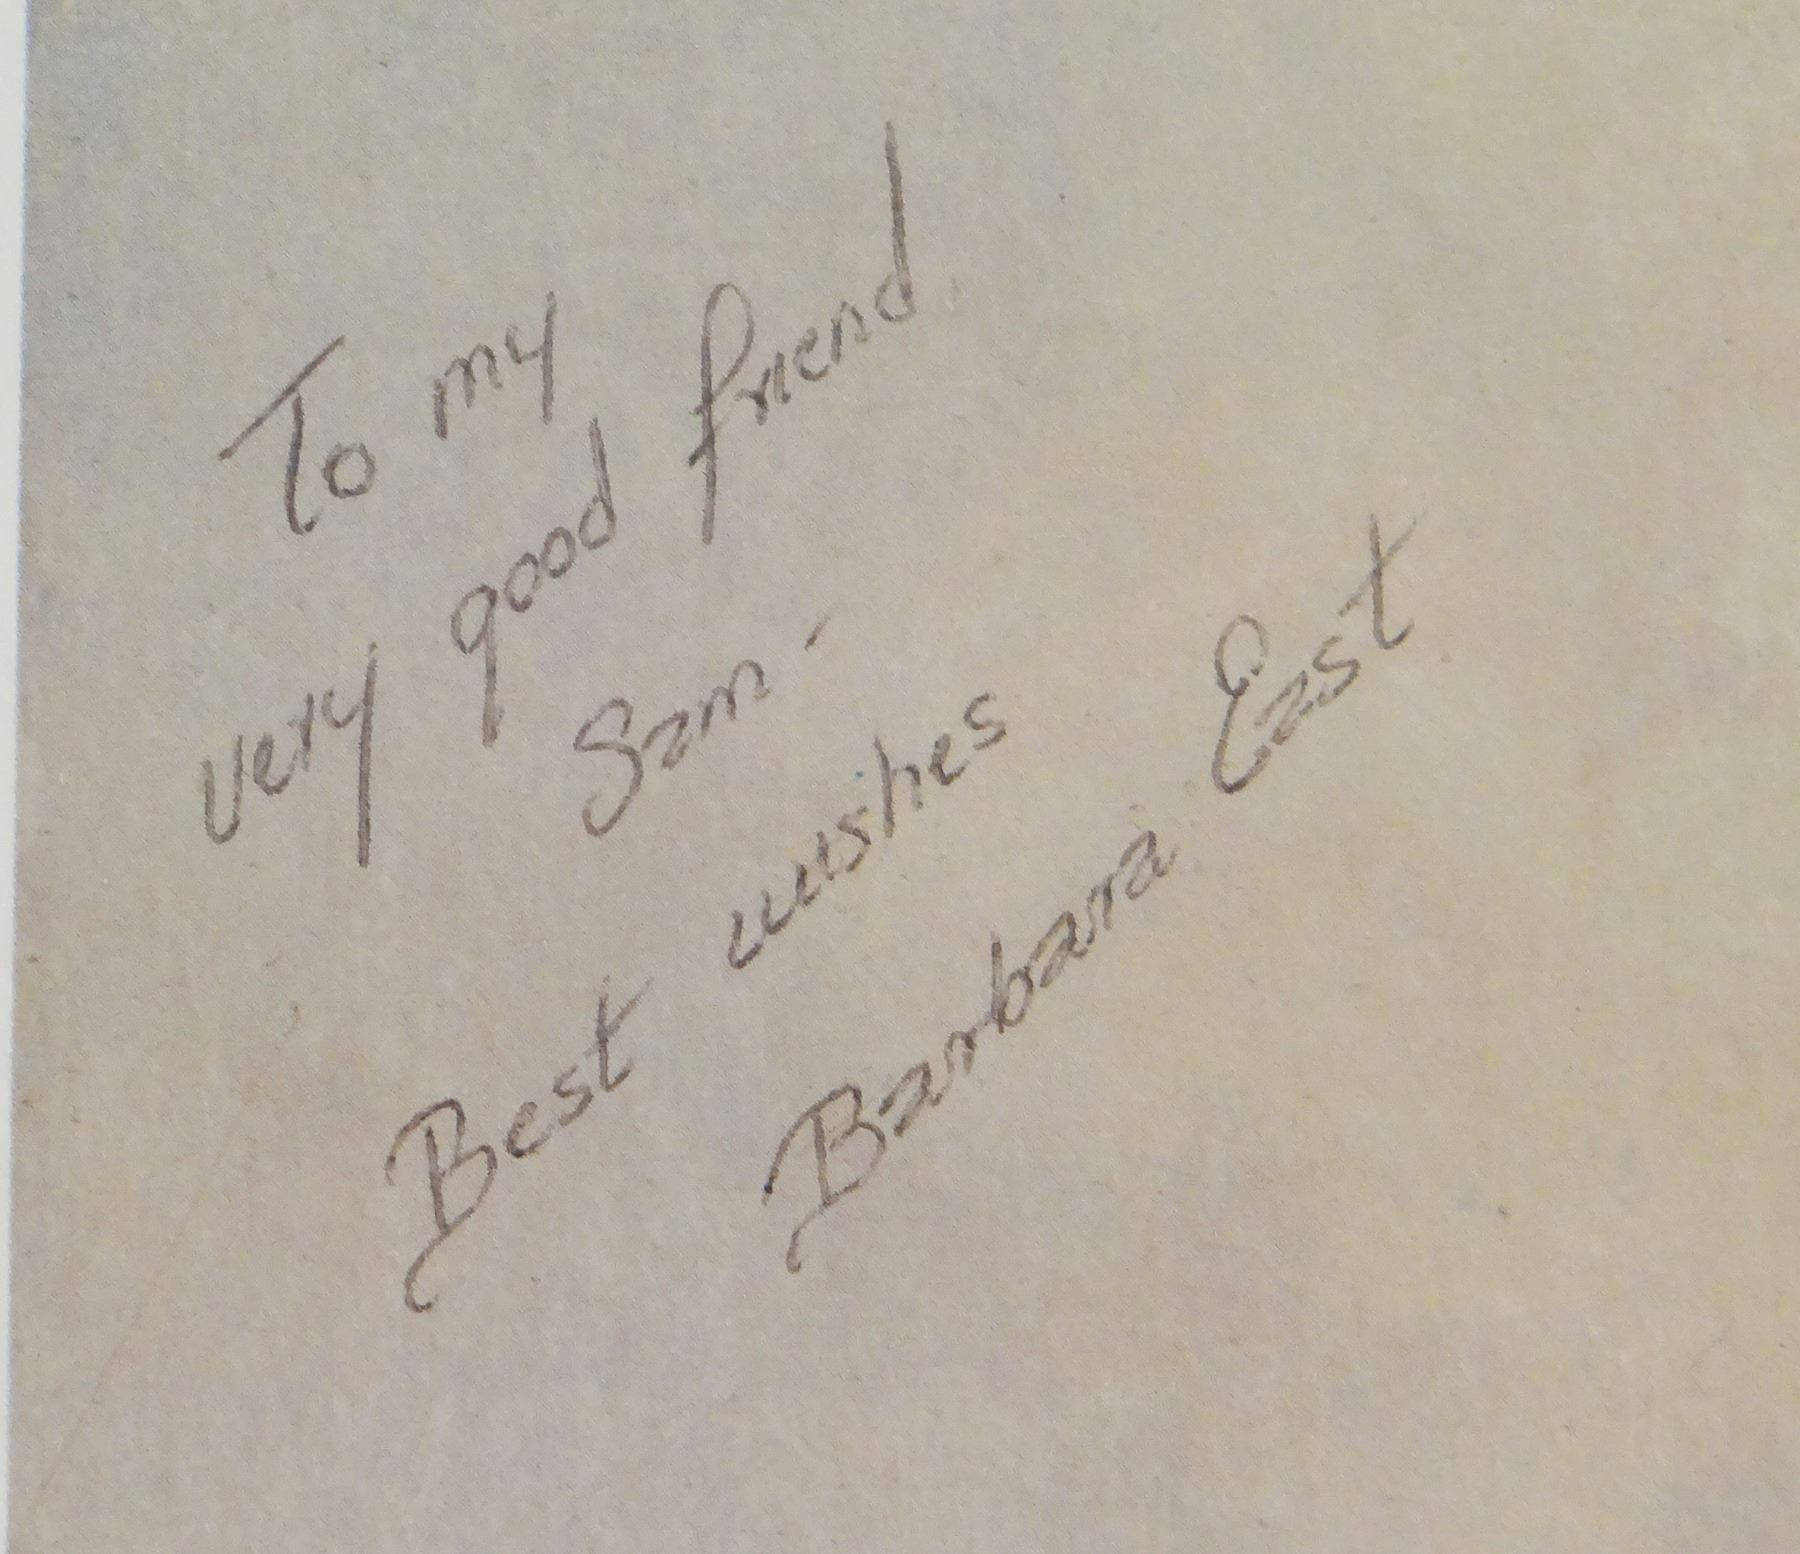 To my
very good friend
Sam -
Best wishes
Barbara East